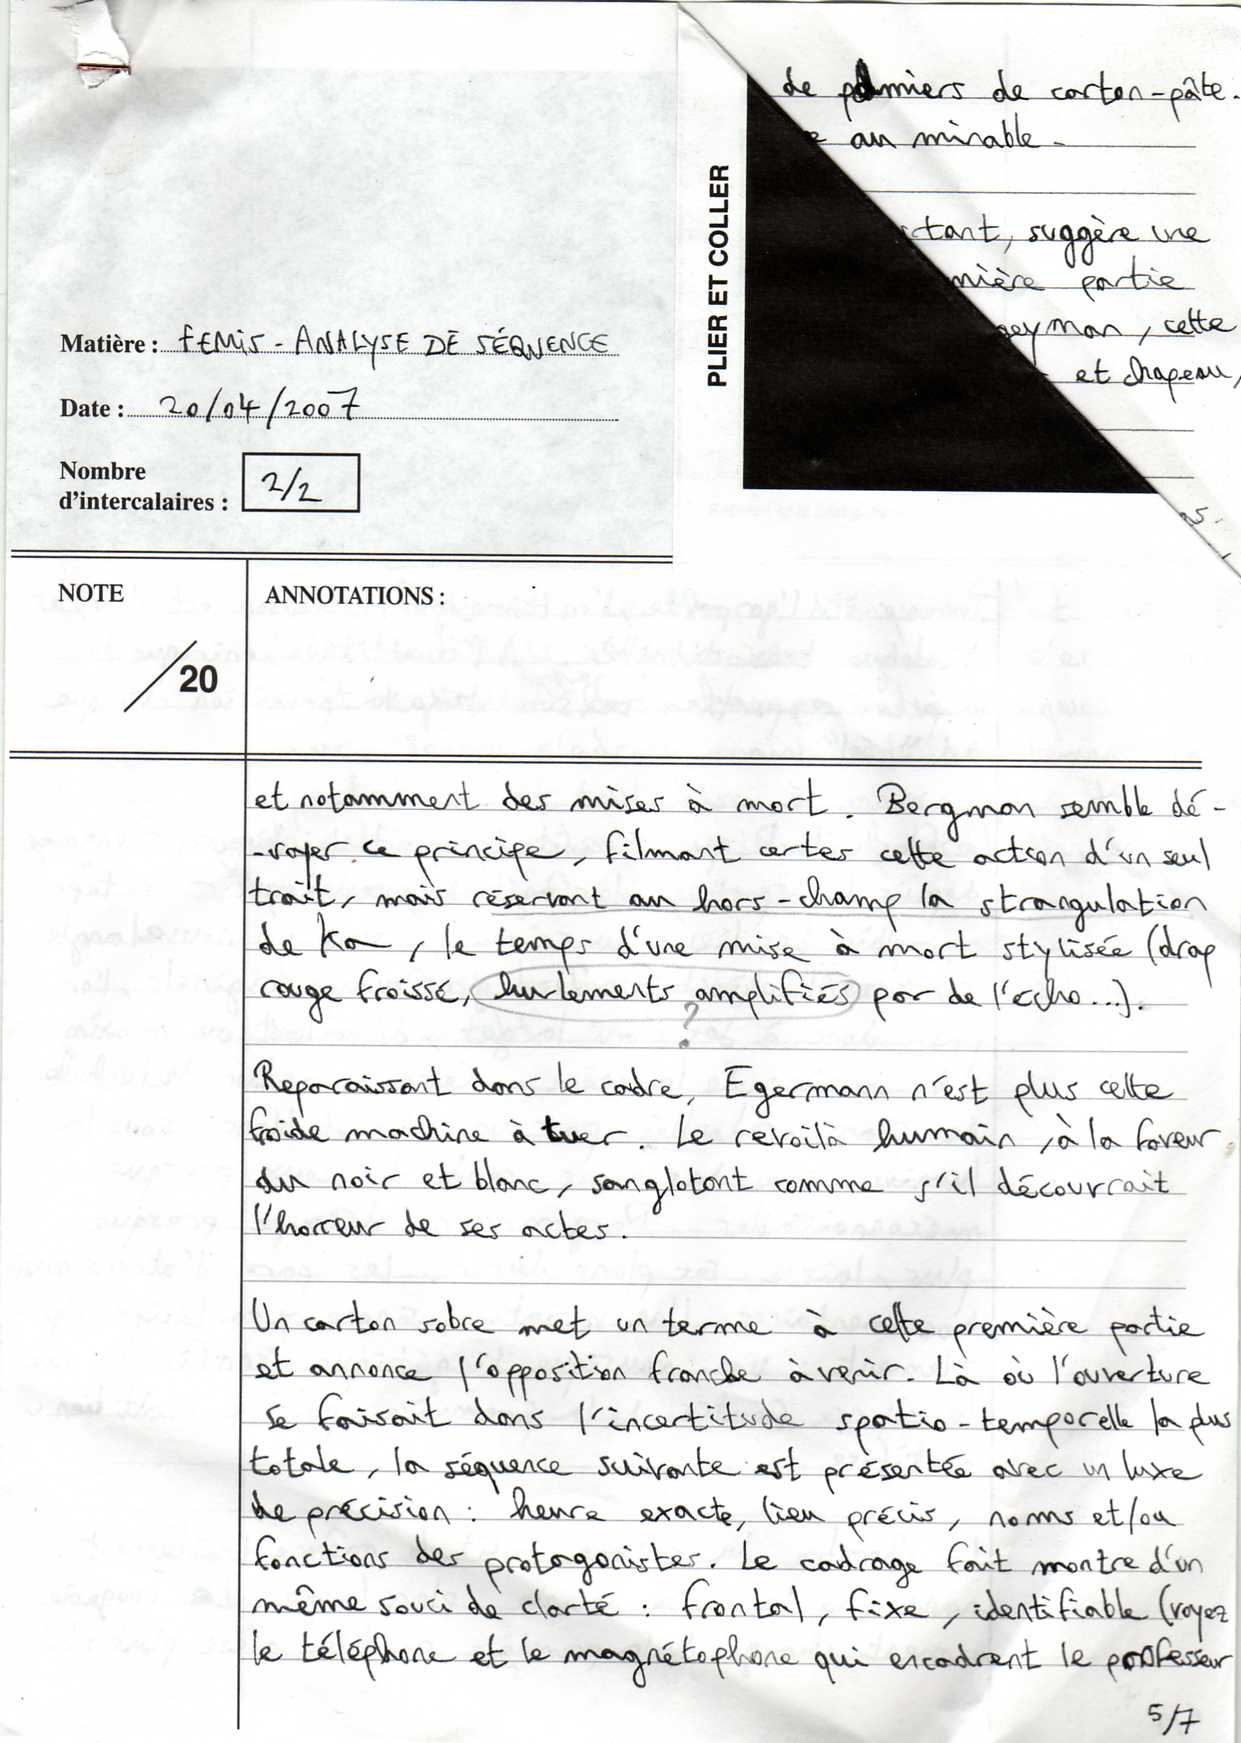 de palmiers de carton-pâte.
au minable.
suggère une
partie
cette
et chapeau,
PLIER ET COLLER
Matière : FEMIS - ANALYSE DE SÉQUENCE
Date : 20/04/2007
Nombre
d'intercalaires : 2/2
NOTE
ANNOTATIONS :
/20
et notamment des mises à mort. Bergman semble dé-
-voyer ce principe, filmant certes cette action d'un seul
trait, mais réservant au hors-champ la strangulation
de Ka, le temps d'une mise à mort stylisée (drap
rouge froissé, hurlements amplifiés par de l'écho...).
?
Reparaissant dans le cadre, Egermann n'est plus cette
froide machine à tuer. Le revoilà humain, à la faveur
du noir et blanc, sanglotant comme s'il découvrait
l'horreur de ses actes.
Un carton sobre met un terme à cette première partie
et annonce l'opposition franche à venir. Là où l'ouverture
se faisait dans l'incertitude spatio-temporelle la plus
totale, la séquence suivante est présentée avec un luxe
de précision : heure exacte, lieu précis, noms et/ou
fonctions des protagonistes. Le cadrage fait montre d'un
même souci de clarté : frontal, fixe, identifiable (voyez
le téléphone et le magnétophone qui encadrent le professeur
5/7